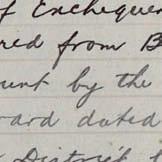 of Exchequer
red from B
unt by the
ard dated
District